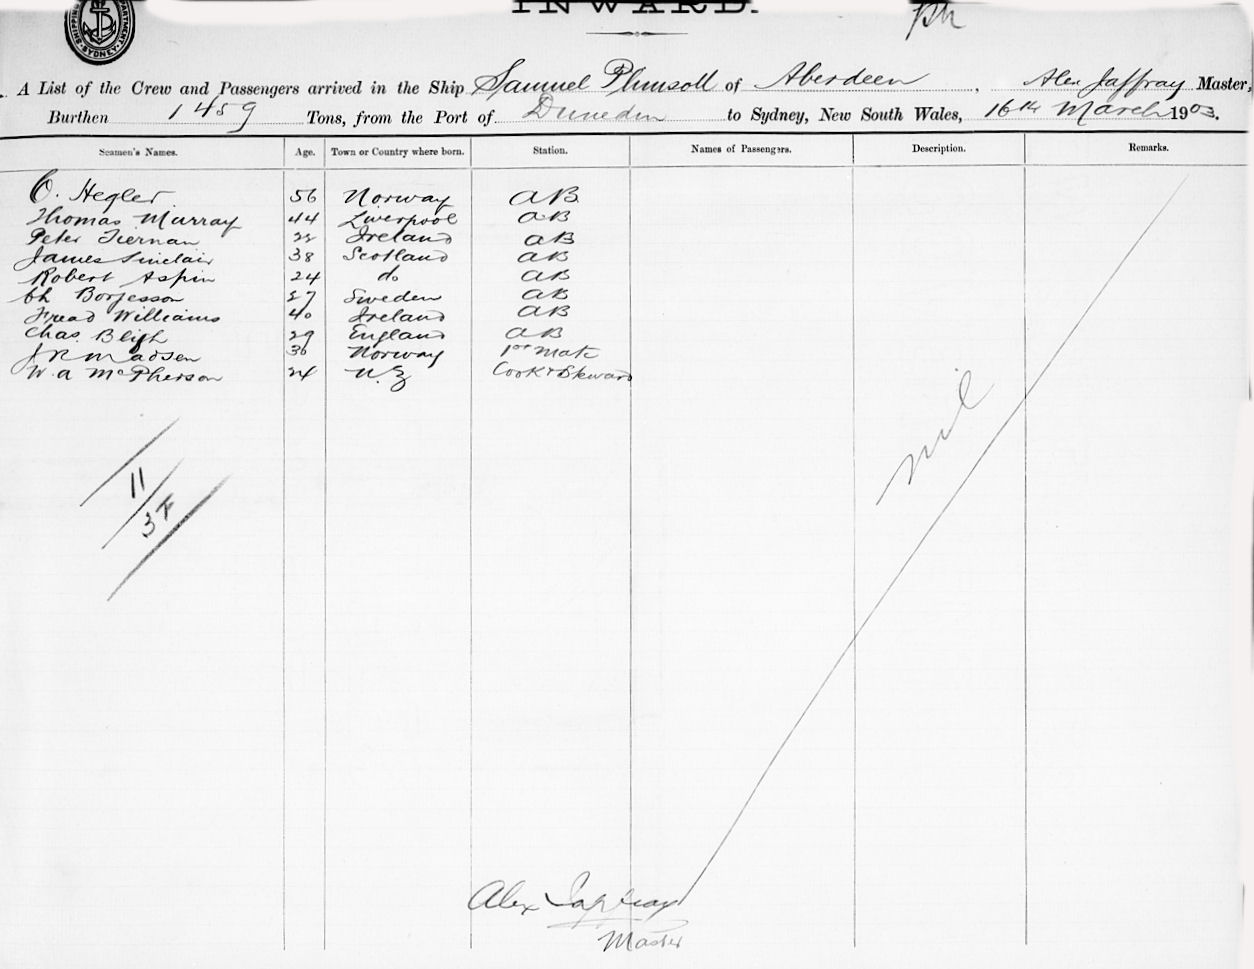 INWARD.
SYDNEY
A List of the Crew and Passengers arrived in the Ship Samuel Plimsoll of Aberdeen, Alex Jaffray Master,
Burthen 1459 Tons, from the Port of Dunedin to Sydney, New South Wales, 16th March 1903.
Seamen's Names. Age. Town or Country where born. Station. Names of Passengers. Description. Remarks.
O. Hegler 56 Norway AB
Thomas Murray 44 Liverpool AB
Peter Tiernan Ireland AB
James Sinclair 38 Scotland AB
Robert Aspin 24 do AB
Ch Borjesson 27 Sweden AB
Fread Williams 40 Ireland AB
Chas. Bligh 29 England AB
J R Madsen 36 Norway 1st Mate
W. A McPherson 24 N.Z Cook & Steward
nil
11
3
Alex Jaffray
Master